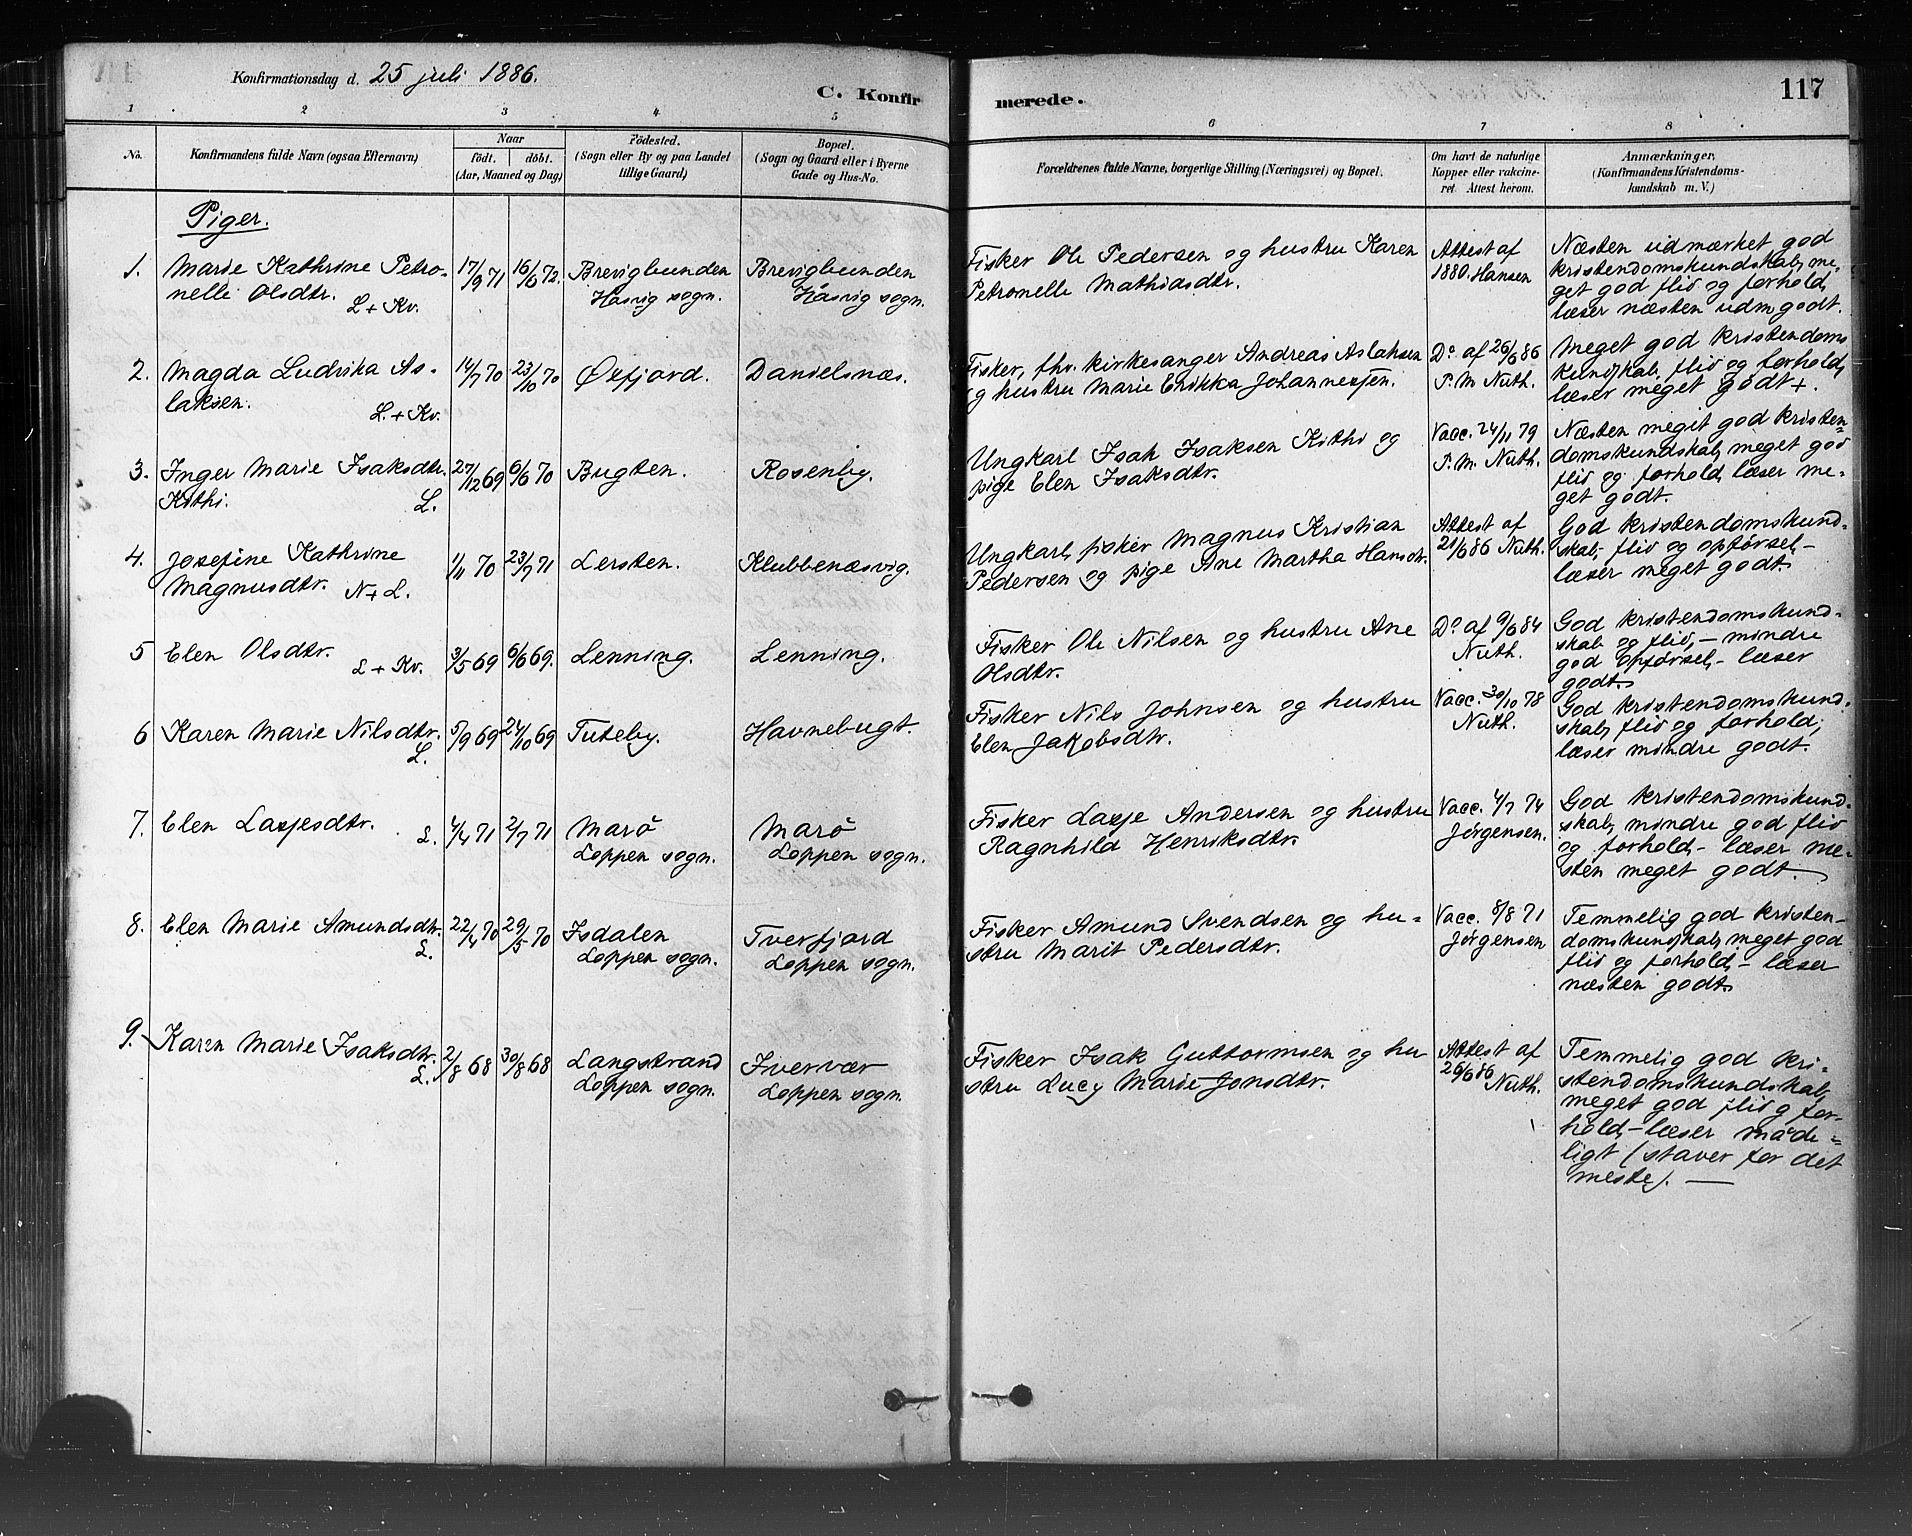 Konfirmationsdag d. 25 juli 1886.
C. Konfirmerede.
117
1 2 3 4 5 6 7 8
No. Konfirmandens fulde Navn (ogsaa Efternavn)
Naar
födt. döbt.
(Aar, Maaned og Dag)
Födested.
(Sogn eller By og paa Landet
tillige Gaard)
Bopæl.
(Sogn og Gaard eller i Byerne
Gade og Hus-No.
Forældrenes fulde Navne, borgerlige Stilling (Næringsvei) og Bopæl.
Om havt de naturlige
Kopper eller vakcine-
ret Attest herom.
Anmærkninger.
(Konfirmandens Kristendoms-
kundskab m. V.)
Piger.
1. Marie Kathrine Petro-
nelle Olsdtr.
L + Kv.
17/9 71 16/6 72.
Brevigbunden
Hasvig sogn.
Brevigbunden
Hasvig sogn.
Fisker Ole Pedersen og hustru Karen
Petronelle Mathiasdtr.
Attest af
1880. Hansen
Næsten udmærket god
kristendomskundskab, me-
get god flid og forhold,
læser næsten udm. godt.
2. Magda Ludvika As-
laksen.
L. + Kv.
14/7 70 23/10 70
Øxfjord.
Danielsnæs.
Fisker, fhv. kirkesanger Andreas Aslaksen
og hustru Marie Erikka Johannessen.
Do af 26/6 86
P. M. Nuth.
Meget god kristendoms
kundskab, flid og forhold,
læser meget godt+.
3. Inger Marie Isaksdtr.
Kithi.
L.
27/12 69 6/6 70
Bugten.
Rosenby.
Ungkarl Isak Isaksen Kithi og
pige Elen Isaksdtr.
Vacc. 24/11 79
P. M. Nuth.
Næsten meget god kristen-
domskundskab, meget god
flid og forhold, læser me-
get godt.
4. Josefine Kathrine
Magnusdtr.
N + L.
1/11 70 23/7 71
Lersten.
Klubbenæsvig.
Ungkarl, fisker Magnus Kristian
Pedersen og pige Ane Martha Hansdtr.
Attest af
21/6 86 Nuth.
God kristendomskund-
skab, flid og opførsel,-
læser meget godt.
5 Elen Olsdtr.
L + Kv.
3/5 69 6/6 69.
Lenning.
Lenning.
Fisker Ole Nilsen og hustru Ane
Olsdtr.
Do af 9/6 84
Nuth.
God kristendomskund-
skab og flid,- mindre
god opførsel,- læser
godt.
6 Karen Marie Nilsdtr.
L.
5/9 69 24/10 69
Tuteby.
Havnebugt.
Fisker Nils Johnsen og hustru
Elen Jakobsdtr.
Vacc. 30/10 78
Nuth.
God kristendomskund-
skab, flid og forhold;
læser mindre godt.
7. Elen Lassesdtr.
L.
4/4 71 2/7 71
Marö
Loppen sogn.
Marö
Loppen sogn.
Fisker Lasse Andersen og hustru
Ragnhild Henriksdtr.
Vacc. 4/7 74
Jørgensen.
God kristendomskund-
skab, mindre god flid
og forhold,- læser næ-
sten meget godt.
8. Elen Marie Amundsdtr.
L.
22/4 70 29/5 70
Isdalen
Loppen sogn.
Tverfjord
Loppen sogn.
Fisker Amund Svendsen og hu-
stru Marit Pedersdtr.
Vacc. 8/8 71
Jørgensen
Temmelig god kristen-
domskundskab, meget god
flid og forhold,- læser
næsten godt.
9. Karen Marie Isaksdtr.
L.
2/8 68 30/8 68
Langstrand
Loppen sogn.
Iverver
Loppen sogn
Fisker Isak Guttormsen og hu
stru Lucy Marie Jonsdtr.
Attest af
26/6 86
Nuth.
Temmelig god kri-
stendomskundskab,
meget god flid og for-
hold,- læser maade-
ligt (staver for det
meste). —